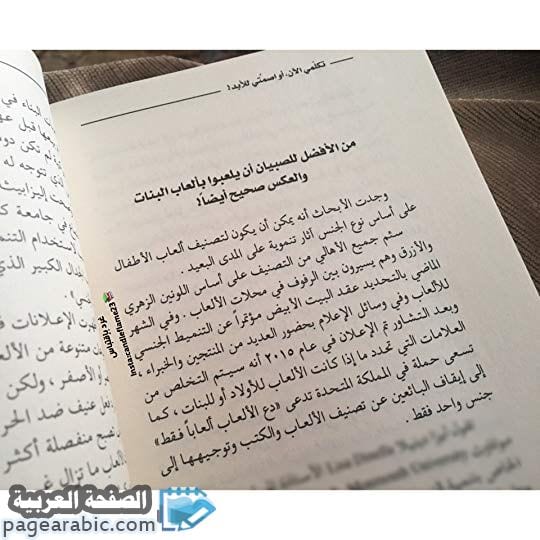 تكلّمي الآن، أو اصمتي للأبد!
من الأفضل للصبيان أن يلعبوا بألعاب البنات
والعكس صحيح أيضاً!
وجدت الأبحاث أنه يمكن أن يكون لتصنيف ألعاب الأطفال
على أساس نوع الجنس آثار تنموية على المدى البعيد .
سئم جميع الأهالي من التصنيف على أساس اللونين الزهري
والأزرق وهم يسيرون بين الرفوف في محلات الألعاب . وفي الشهر
الماضي بالتحديد عقد البيت الأبيض مؤتمراً عن التنميط الجنسي
للألعاب وفي وسائل الإعلام بحضور العديد من المنتجين والخبراء ،
وبعد التشاور تم الإعلان في عام ٢٠١٥ أنه سيتم التخلص من
العلامات التي تحدد ما إذا كانت الألعاب للأولاد أو للبنات ، كما
تسعى حملة في المملكة المتحدة تدعى «دع الألعاب ألعاباً فقط»
إلى إيقاف البائعين عن تصنيف الألعاب والكتب وتوجيهها إلى
جنس واحد فقط .
البناء في
لم تكن
توجه له
إليزابيث
في جامعة
استخدام
الكبير الذي
الإعلانات
متنوعة من
الأصفر ، ولكن
عنيف ضد
منفصلة أكثر
ما تزال
الصفحة العربية
pagearabic.com